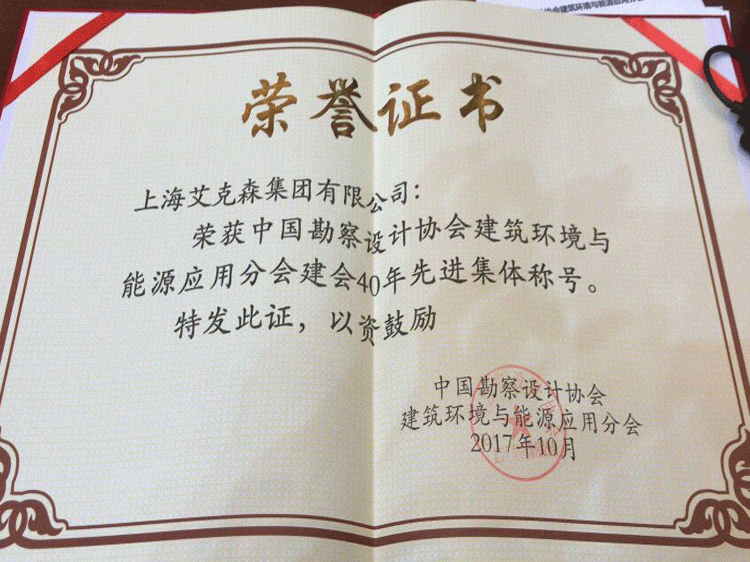 协会建筑环境与能源应用分会
荣誉证书
上海艾克森集团有限公司：
荣获中国勘察设计协会建筑环境与
能源应用分会建会40年先进集体称号。
特发此证，以资鼓励
中国勘察设计协会
建筑环境与能源应用分会
2017年10月